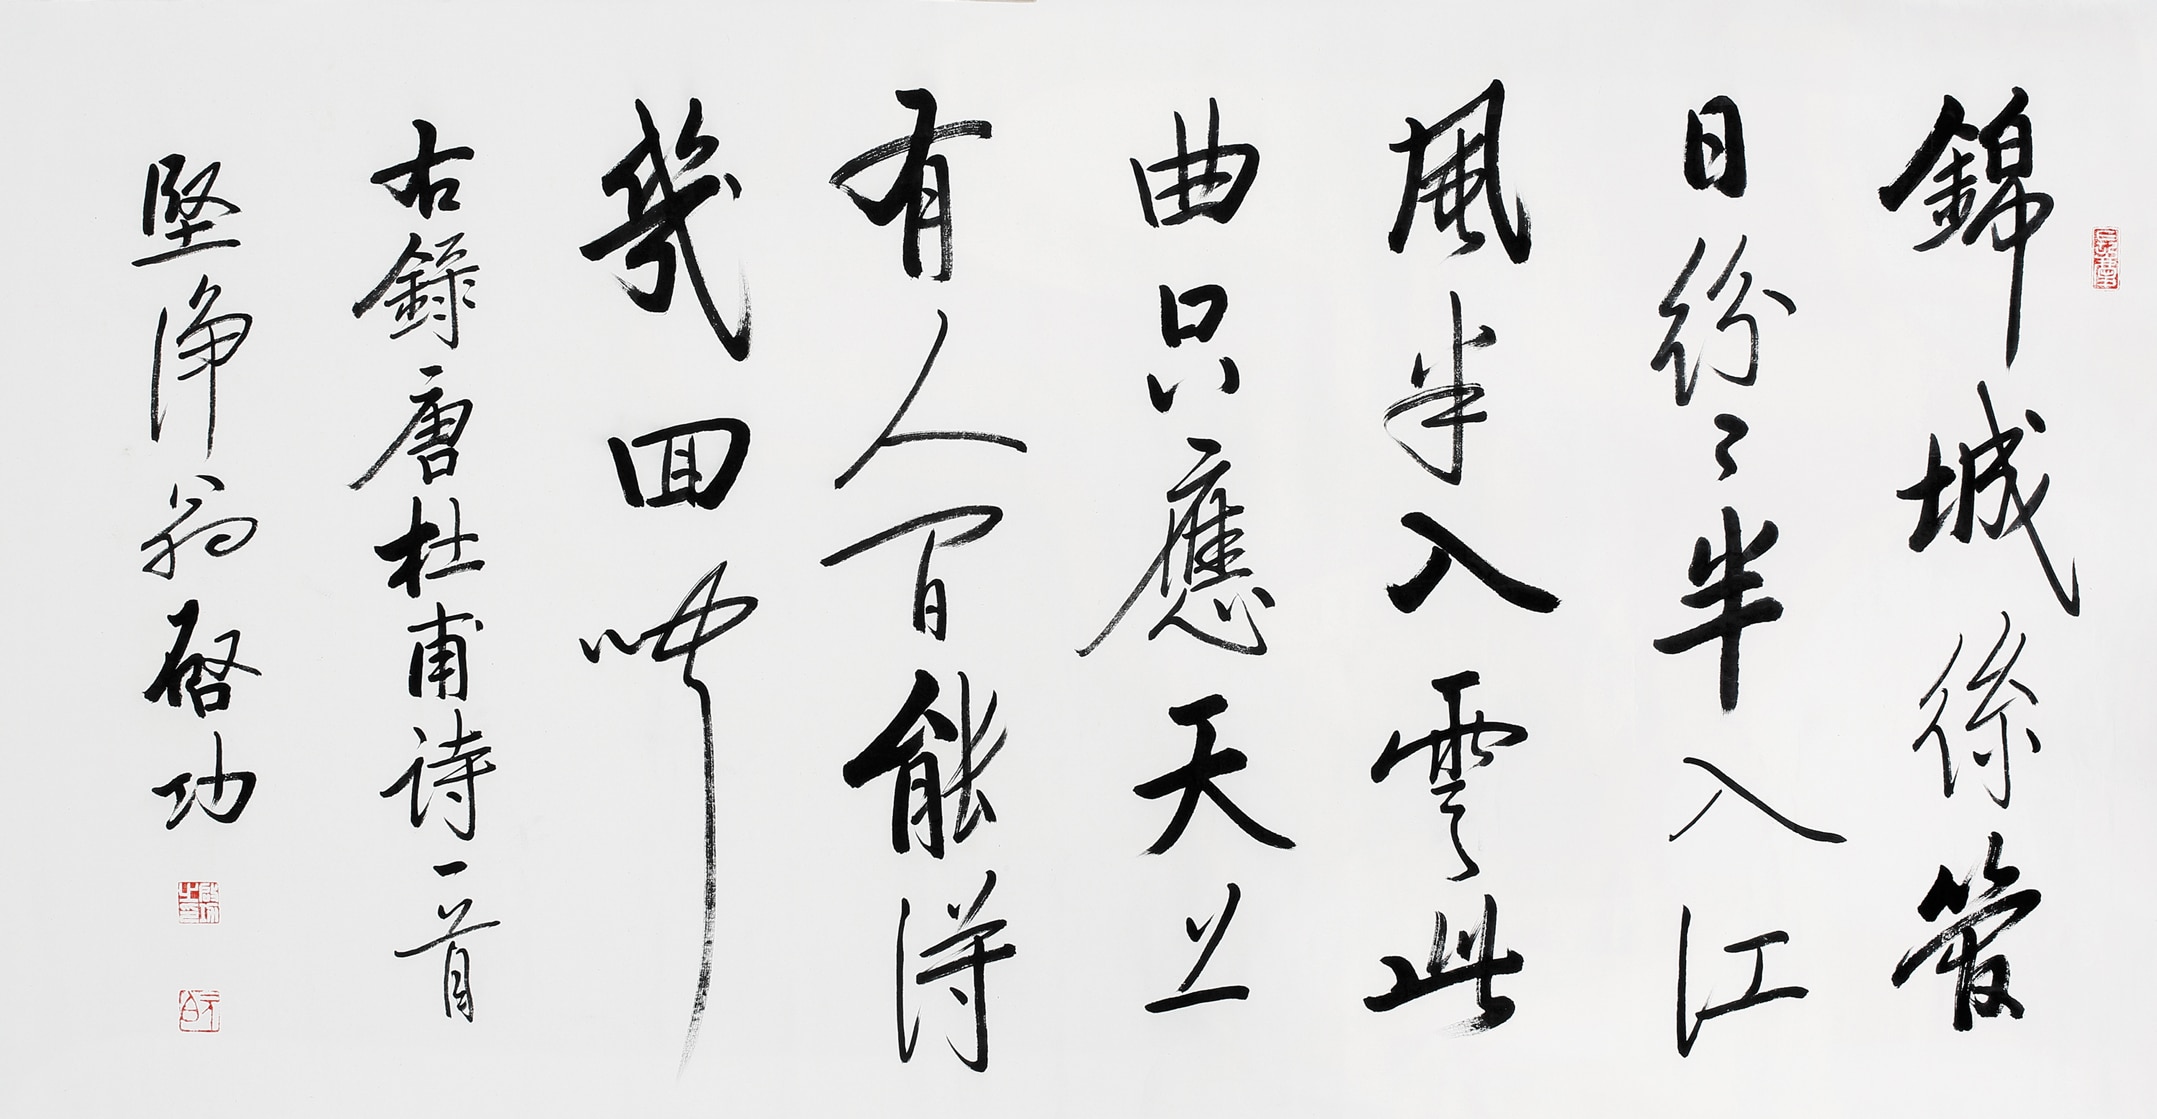 錦城絲管
日紛〻半入江
風半入雲此
曲只應天上
有人間能得
幾回聞
右錄唐杜甫诗一首
堅净翁啓功